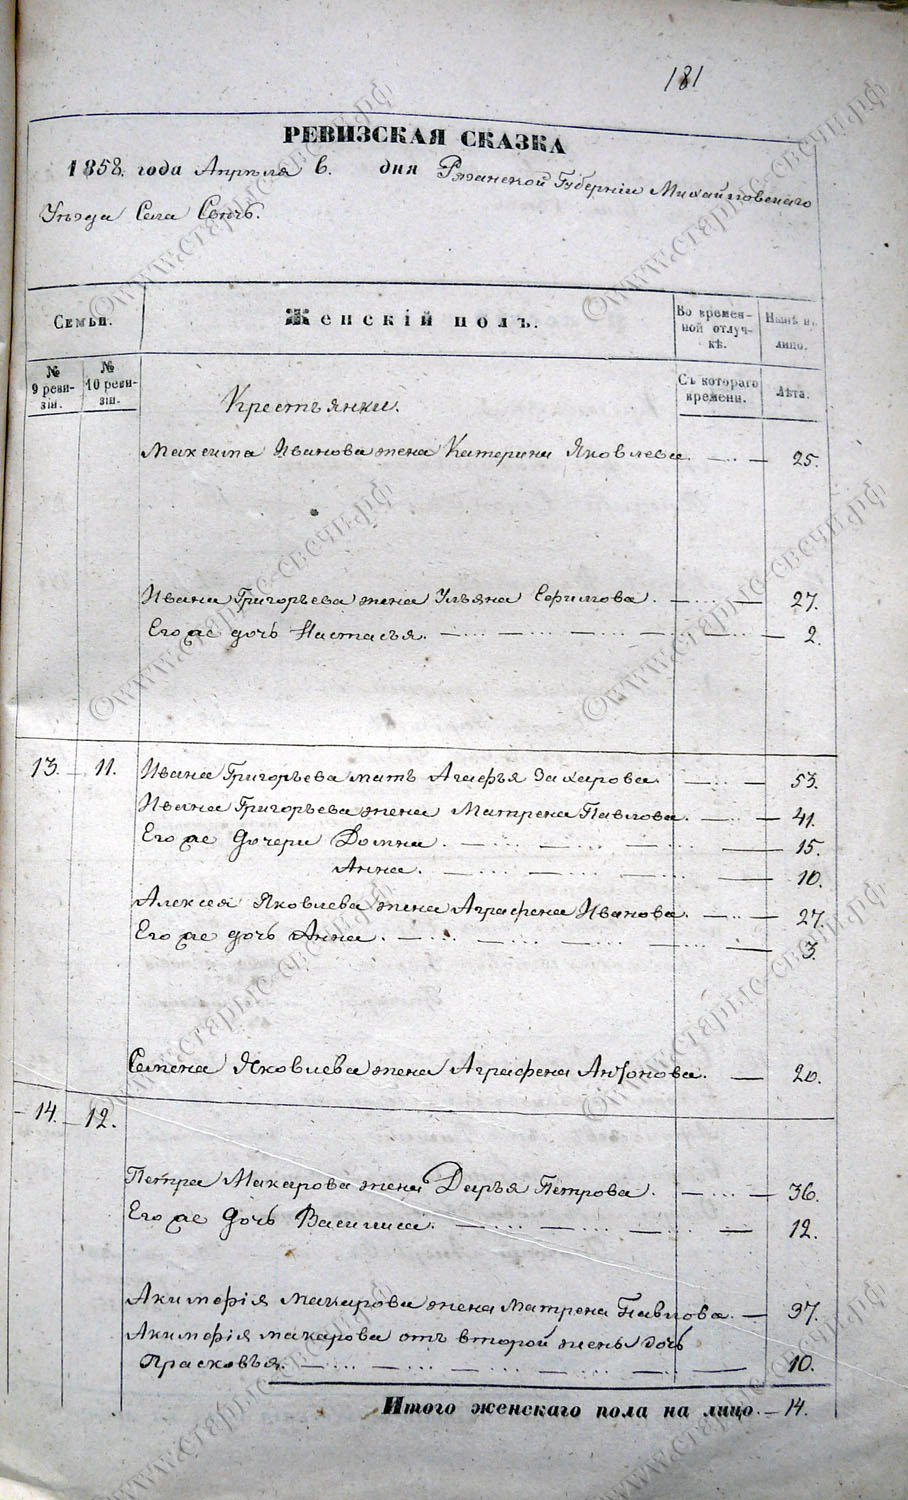 181
РЕВИЗСКАЯ СКАЗКА
1858. года Апрѣля 6. дня Рязанской Губерніи Михайловскаго
Уѣзда Села Сенчъ.
Семьи.
Женскій полъ.
Во времен-
ной отлуч-
кѣ.
Нынѣ на
лицо.
№
9 реви-
зіи.
№
10 реви-
зіи.
Съ котораго
времени.
Лѣта.
Крестьянки.
Максима Иванова жена Катерина Яковлева. 25.
Ивана Григорьева жена Ульяна Ефимова. 27.
Его же дочь Настасья. 2.
13. 11. Ивана Григорьева мать Агафья Захарова. 53.
Ивана Григорьева жена Матрена Павлова. 41.
Его же Дочери Домна. 15.
Анна. 10.
Алексея Яковлева жена Аграфена Иванова. 27.
Его же дочь Анна. 3.
Семена Яковлева жена Аграфена Антонова. 20.
14. 12.
Петра Макарова жена Дарья Петрова. 36.
Его же Дочь Василиса. 12.
Акимфія Макарова жена Матрена Павлова. 37.
Акимфія Макарова отъ второй жены дочь
Прасковья. 10.
Итого женскаго пола на лицо. 14.
©www.старые-свечи.рф
©www.старые-свечи.рф
©www.старые-свечи.рф
©www.старые-свечи.рф
©www.старые-свечи.рф
©www.старые-свечи.рф